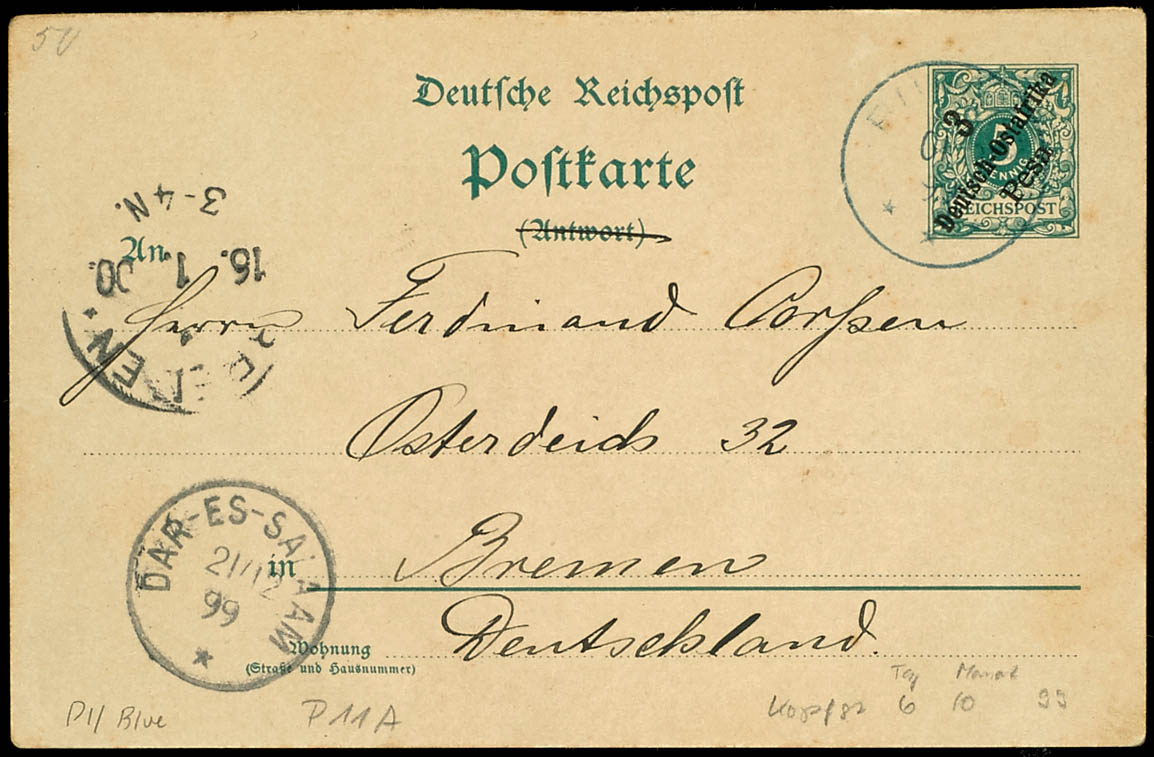 50
Deutsche Reichspost
Postkarte
(Antwort)
3
Deutsch-Ostafrika
Pesa.
5
PFENNIG
REICHSPOST
3-4 N.
An
16. 1. 00.
Herrn Ferdinand Corssen
Osterdeich 32
DAR-ES-SALAAM
21/12
99
in Bremen
Deutschland.
Wohnung
(Straße und Hausnummer)
Tag Monat
6 10 99
Blue
P11A